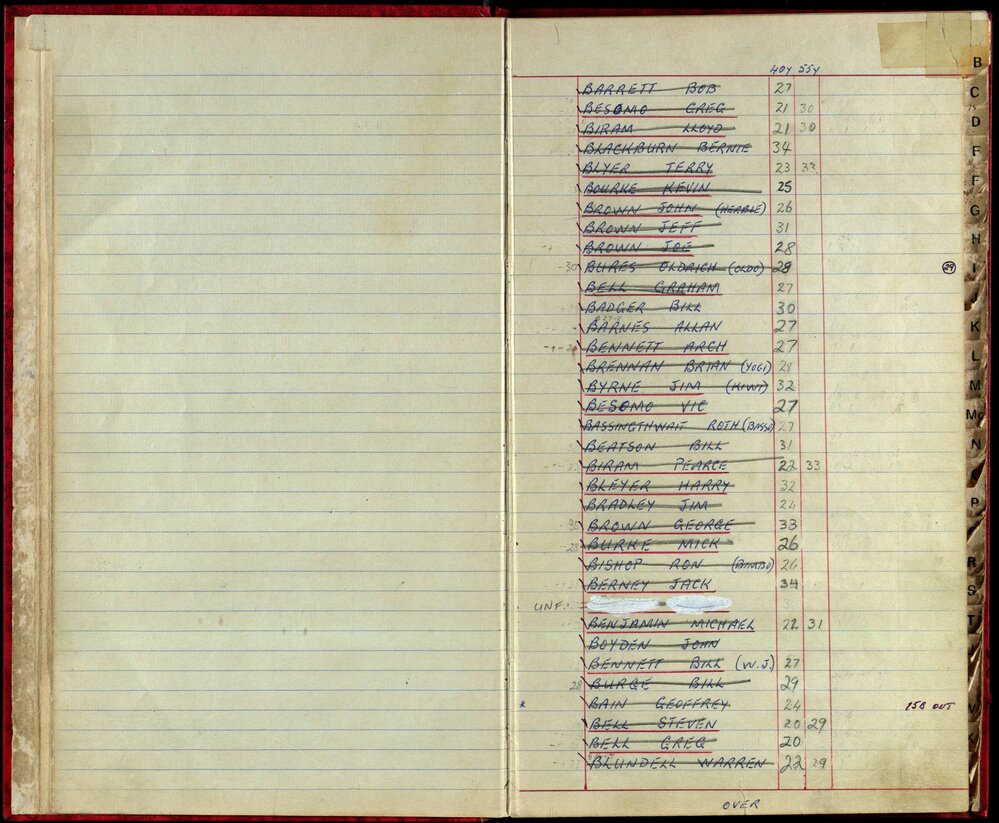 40Y 55Y
BARRETT BOB 27
BESOMO GREG 21 30
BIRAM LLOYD 21 30
BLACKBURN BERNIE 34
BLYER TERRY 23 33
BOURKE KEVIN 25
BROWN JOHN (HERBIE) 26
BROWN JEFF 31
BROWN JOE 28
30 BURES OLDRICH (OLDO) 28 29
BELL GRAHAM 27
BADGER BILL 30
BARNES ALLAN 27
BENNETT ARCH 27
BRENNAN BRIAN (YOGI) 28
BYRNE JIM (KIWI) 32
BESOMO VIC 27
BASSINGTHWAIT ROTH (BASS) 27
BEATSON BILL 31
BIRAM PEARCE 22 33
BLEYER HARRY 32
BRADLEY JIM 24
BROWN GEORGE 33
28 BURKE MICK 26
BISHOP RON (BIMBO) 26
BERNEY JACK 34
UNF.
BENJAMIN MICHAEL 22 31
BOYDEN JOHN
BENNETT BILL (W.J.) 27
28 BURGE BILL 29
BAIN GEOFFREY 24 15B OUT
BELL STEVEN 20 29
BELL GREG 20
BLUNDELL WARREN 22 29
OVER
B
C
D
F
F
G
H
I
J
K
L
M
Mc
N
P
R
S
T
W